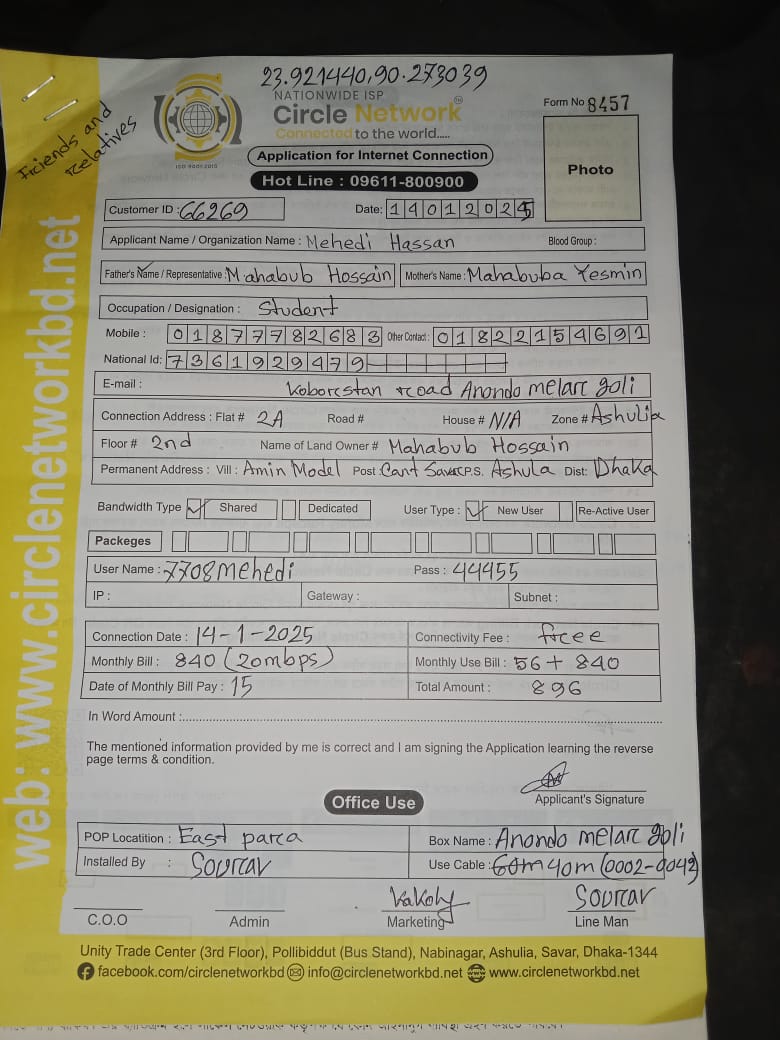 23.921440,90.273039
NATIONWIDE ISP
Circle Network
Connected to the world.....
Friends and
Relatives
ISO 9001:2015
Application for Internet Connection
Hot Line : 09611-800900
Form No 8457
Photo
Customer ID : 66269 Date: 14012025
Applicant Name / Organization Name : Mehedi Hassan Blood Group :
Father's Name / Representative : Mahabub Hossain Mother's Name : Mahabuba Yesmin
Occupation / Designation : Student
Mobile : 01877782683 Other Contact : 01822154691
National Id: 7361929479
E-mail : Koborestan road Anondo melar goli
Connection Address : Flat # 2A Road # House # N/A Zone # Ashulia
Floor # 2nd Name of Land Owner # Mahabub Hossain
Permanent Address : Vill : Amin Model Post : Cant Savar P.S. Ashula Dist: Dhaka
Bandwidth Type Shared Dedicated User Type : New User Re-Active User
Packeges
User Name : 7708mehedi Pass : 44455
IP : Gateway : Subnet :
Connection Date : 14-1-2025 Connectivity Fee : free
Monthly Bill : 840 (20mbps) Monthly Use Bill : 56 + 840
Date of Monthly Bill Pay : 15 Total Amount : 896
In Word Amount :
The mentioned information provided by me is correct and I am signing the Application learning the reverse
page terms & condition.
Applicant's Signature
Office Use
POP Locatition : East para Box Name : Anondo melar goli
Installed By : Sourav Use Cable : 60m 40m (0002-0042)
Kakoly Sourav
C.O.O Admin Marketing Line Man
Unity Trade Center (3rd Floor), Pollibiddut (Bus Stand), Nabinagar, Ashulia, Savar, Dhaka-1344
facebook.com/circlenetworkbd info@circlenetworkbd.net www.circlenetworkbd.net
web: www.circlenetworkbd.net